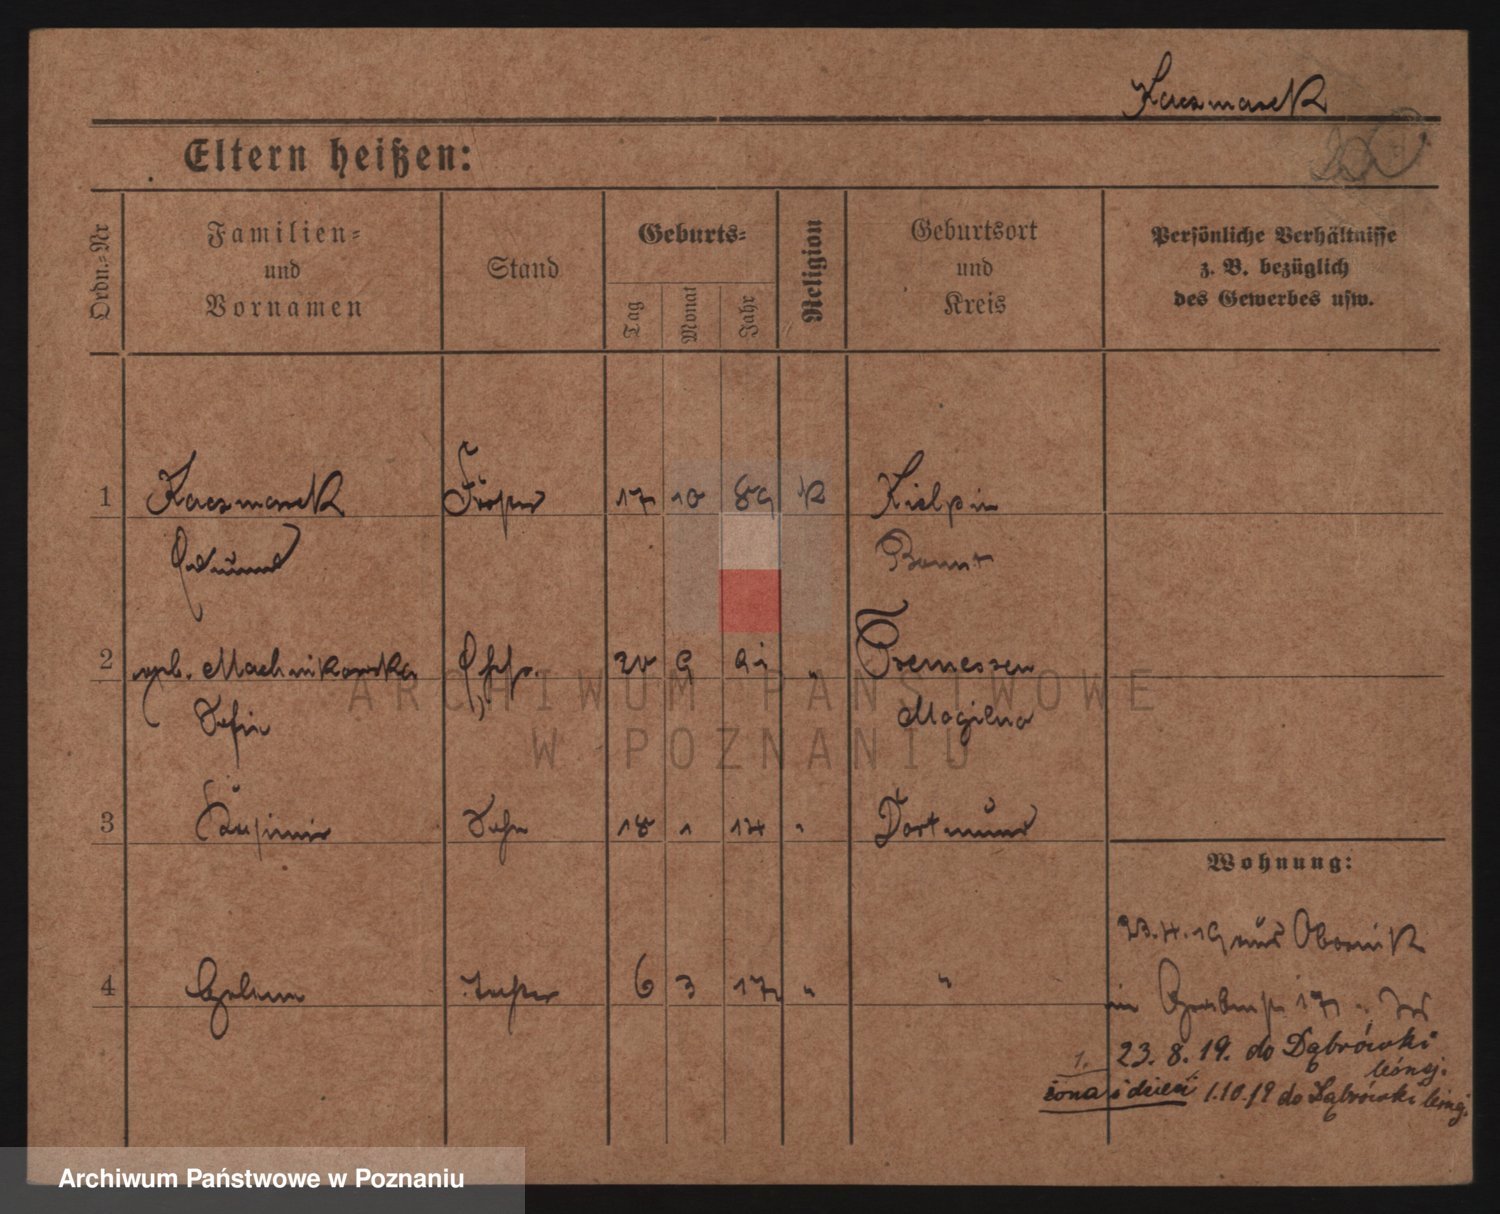 Kaczmarek
Eltern heißen:
Ordn.-Nr
Familien-
und
Vornamen
Stand
Geburts-
Tag
Monat
Jahr
Religion
Geburtsort
und
Kreis
Persönliche Verhältnisse
z. B. bezüglich
des Gewerbes usw.
1 Kaczmarek 17 10 89 k Kielpin
Edmund Bomst
2 geb. Machnikowska Ehefr. 20 9 " Tremessen
Sofie Mogilno
3 Kasimir Sohn 18 1 14 " Dortmund
Wohnung:
23.4.19 aus Obornik
4 Helene Tochter 6 3 17 " "
in
1. 23. 8. 19. do Dąbrówki
leśnej.
żona i dzieci 1.10.19 do Dąbrówki leśnej.
ARCHIWUM PAŃSTWOWE
W POZNANIU
Archiwum Państwowe w Poznaniu